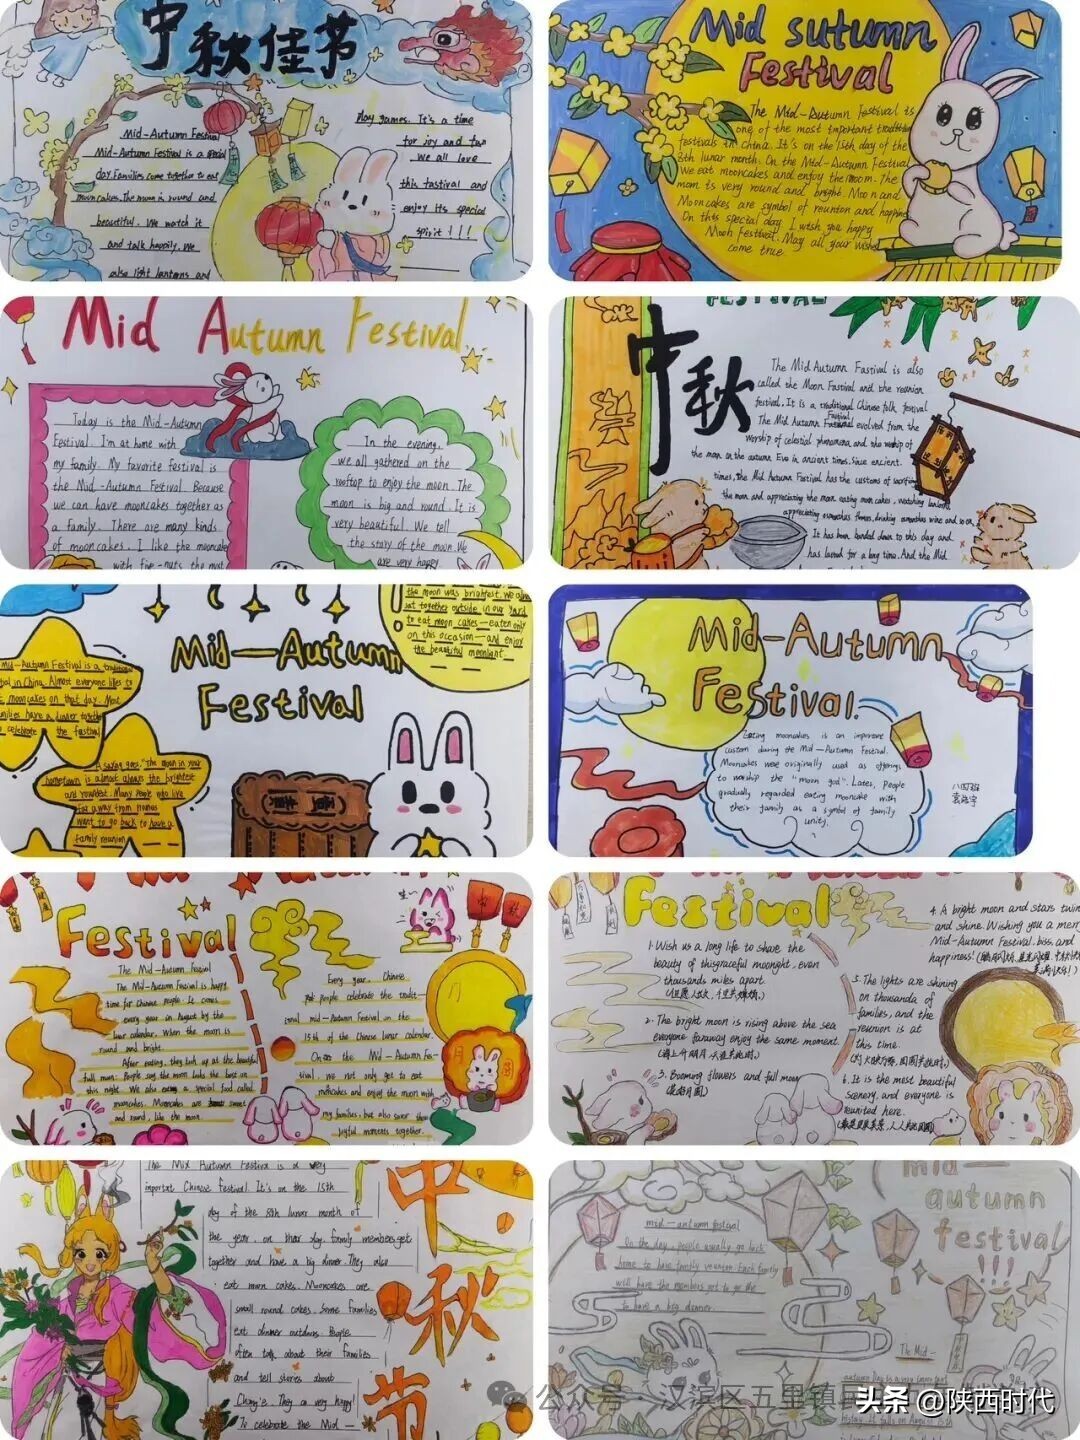 中秋佳节
Mid-Autumn Festival
Mid-Autumn Festival is a special
day. Families come together to eat
mooncakes. The moon is round and
beautiful. We watch it
and talk happily. We
also light lanterns and
play games. It's a time
for joy and fun
We all love
this fastival and
enjoy its special
spirit!!!
Mid sutumn
Festival
The Mid-Autumn Festival is
one of the most important traditional
festivals in China. It's on the 15th day of the
8th lunar month. On the Mid-Autumn Festival
We eat mooncakes and enjoy the moom. The
moon is very round and bright. Moon and
Mooncakes are symbol of reunion and happine
On this special day. I wish you happy
Moon Festival. May all your wishes
come true.
Mid Autumn Festival
Today is the Mid-Autumn
Festival. I'm at home with
my family. My favorite festival is
the Mid-Autumn Festival. Because
we can have mooncakes together as
a family. There are many kinds
of mooncakes. I like the mooncake
with five-nuts the most
In the evening,
we all gathered on the
rooftop to enjoy the moon. The
moon is big and round. It is
very beautiful. We tell
the story of the moon. We
are very happy
FESTIVAL
中秋
The Mid Autumn Fastival is also
called the Moon Fastival and the reunion
festival. It is a traditional Chinese folk festival
The Mid Autumn Festival evolved from the
worship of celestial phenomena and the worship of
the moon on the autumn Eve in ancient times. Since ancient
times, the Mid Autumn Festival has the customs of sacrificing
the moon and appreciating the moon eating moon cakes, watching lanterns
appreciating osmanthus flowers, drinking osmanthus wine and so on,
It has been handed down to this day and
has lasted for a long time. And the Mid
the moon was brightest. We also
sat together outside in our yard
to eat moon cakes—eaten only
on this occasion—and enjoy
the beautiful moonlight.
Mid—Autumn
Festival
Mid-Autumn Festival is a traditional
tial in China. Almost everyone likes to
t mooncakes on that day. Most
milies have a dinner together
o celebrate the festival
A saying goes, "The moon in your
hometown is almost always the brightest
and roundest. Many people who live
far away from homes
want to go back to have a
family reunion
Mid-Autumn
Festival.
Eating mooncakes is an important
custom during the Mid-Autumn Festival.
Mooncakes were originally used as offerings
to worship the "moon god". Later, people
gradually regarded eating mooncake with
their family as a symbol of family
unity.
Festival
中秋
The Mid-Autumn Festival
The Mid-Autumn Festival is happy
time for Chinese people. It comes
every year in August by the
lunar calendar. When the moon is
round and bright.
After eating, they look up at the beautiful
full moon. People say the moon looks the best in
this night. We also eating a special food called
mooncakes. Mooncakes are sweet
and round, like the moon.
Every year, Chinese
people celebrate the tradit-
ional mid-Autumn Festival on the
15th of the Chinese lunar calendar.
On the Mid-Autumn Fes-
tival, we not only get to eat
mooncakes and enjoy the moon with
my families, but also savor those
joyful moments together.
Festival
1. Wish us a long life to share the
beauty of thisgraceful moonlight, even
thousands miles apart.
(但愿人长久，千里共婵娟。)
2. The bright moon is rising above the sea
everyone faraway enjoy the same moment.
(海上升明月，天涯共此时。)
3. Booming flowers and full moon
(花好月圆)
4. A bright moon and stars twin
and shine. Wishing you a merry
Mid-Autumn Festival. biss and
happiness!
5. The lights are shining
on thousands of
families, and the
reunion is at
this time.
6. It is the most beautiful
scenery, and everyone is
reunited here.
The Mid Autumn Festival is a very
important Chinese festival. It's on the 15th
day of the 8th lunar month of
the year. on that day. family members get
together and have a big dinner. They also
eat moon cakes. Mooncakes are
small round cakes. Some families
eat dinner outdoors. People
often talk about their families
and tell stories about
Chang'e. They are very happy!
To celebrate the Mid—
中秋节
mid-autumn festival
mid—
autumn
festival
!!!
On the day, people usually go back
home to have family reunion. Each family
will have the members get to go the
to have a big dinner
The Mid-
autumn Day is a very important
history. It falls on August 15th
公众号 · 汉滨区五里镇民
头条 @陕西时代